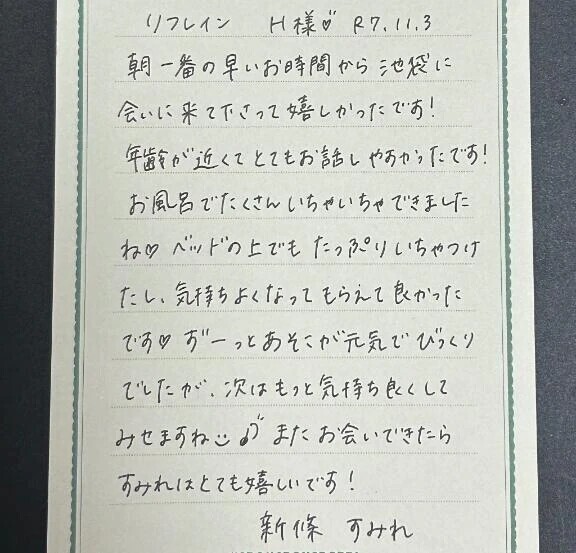 リフレイン H様♡ R7.11.3
朝一番の早いお時間から池袋に
会いに来て下さって嬉しかったです!
年齢が近くてとてもお話しやすかったです!
お風呂でたくさんいちゃいちゃできました
ね♡ ベッドの上でもたっぷりいちゃつけ
たし、気持ちよくなってもらえて良かった
です♡ ずーっとあそこが元気でびっくり
でしたが、次はもっと気持ち良くして
みせますね またお会いできたら
すみれはとても嬉しいです!
新條 すみれ